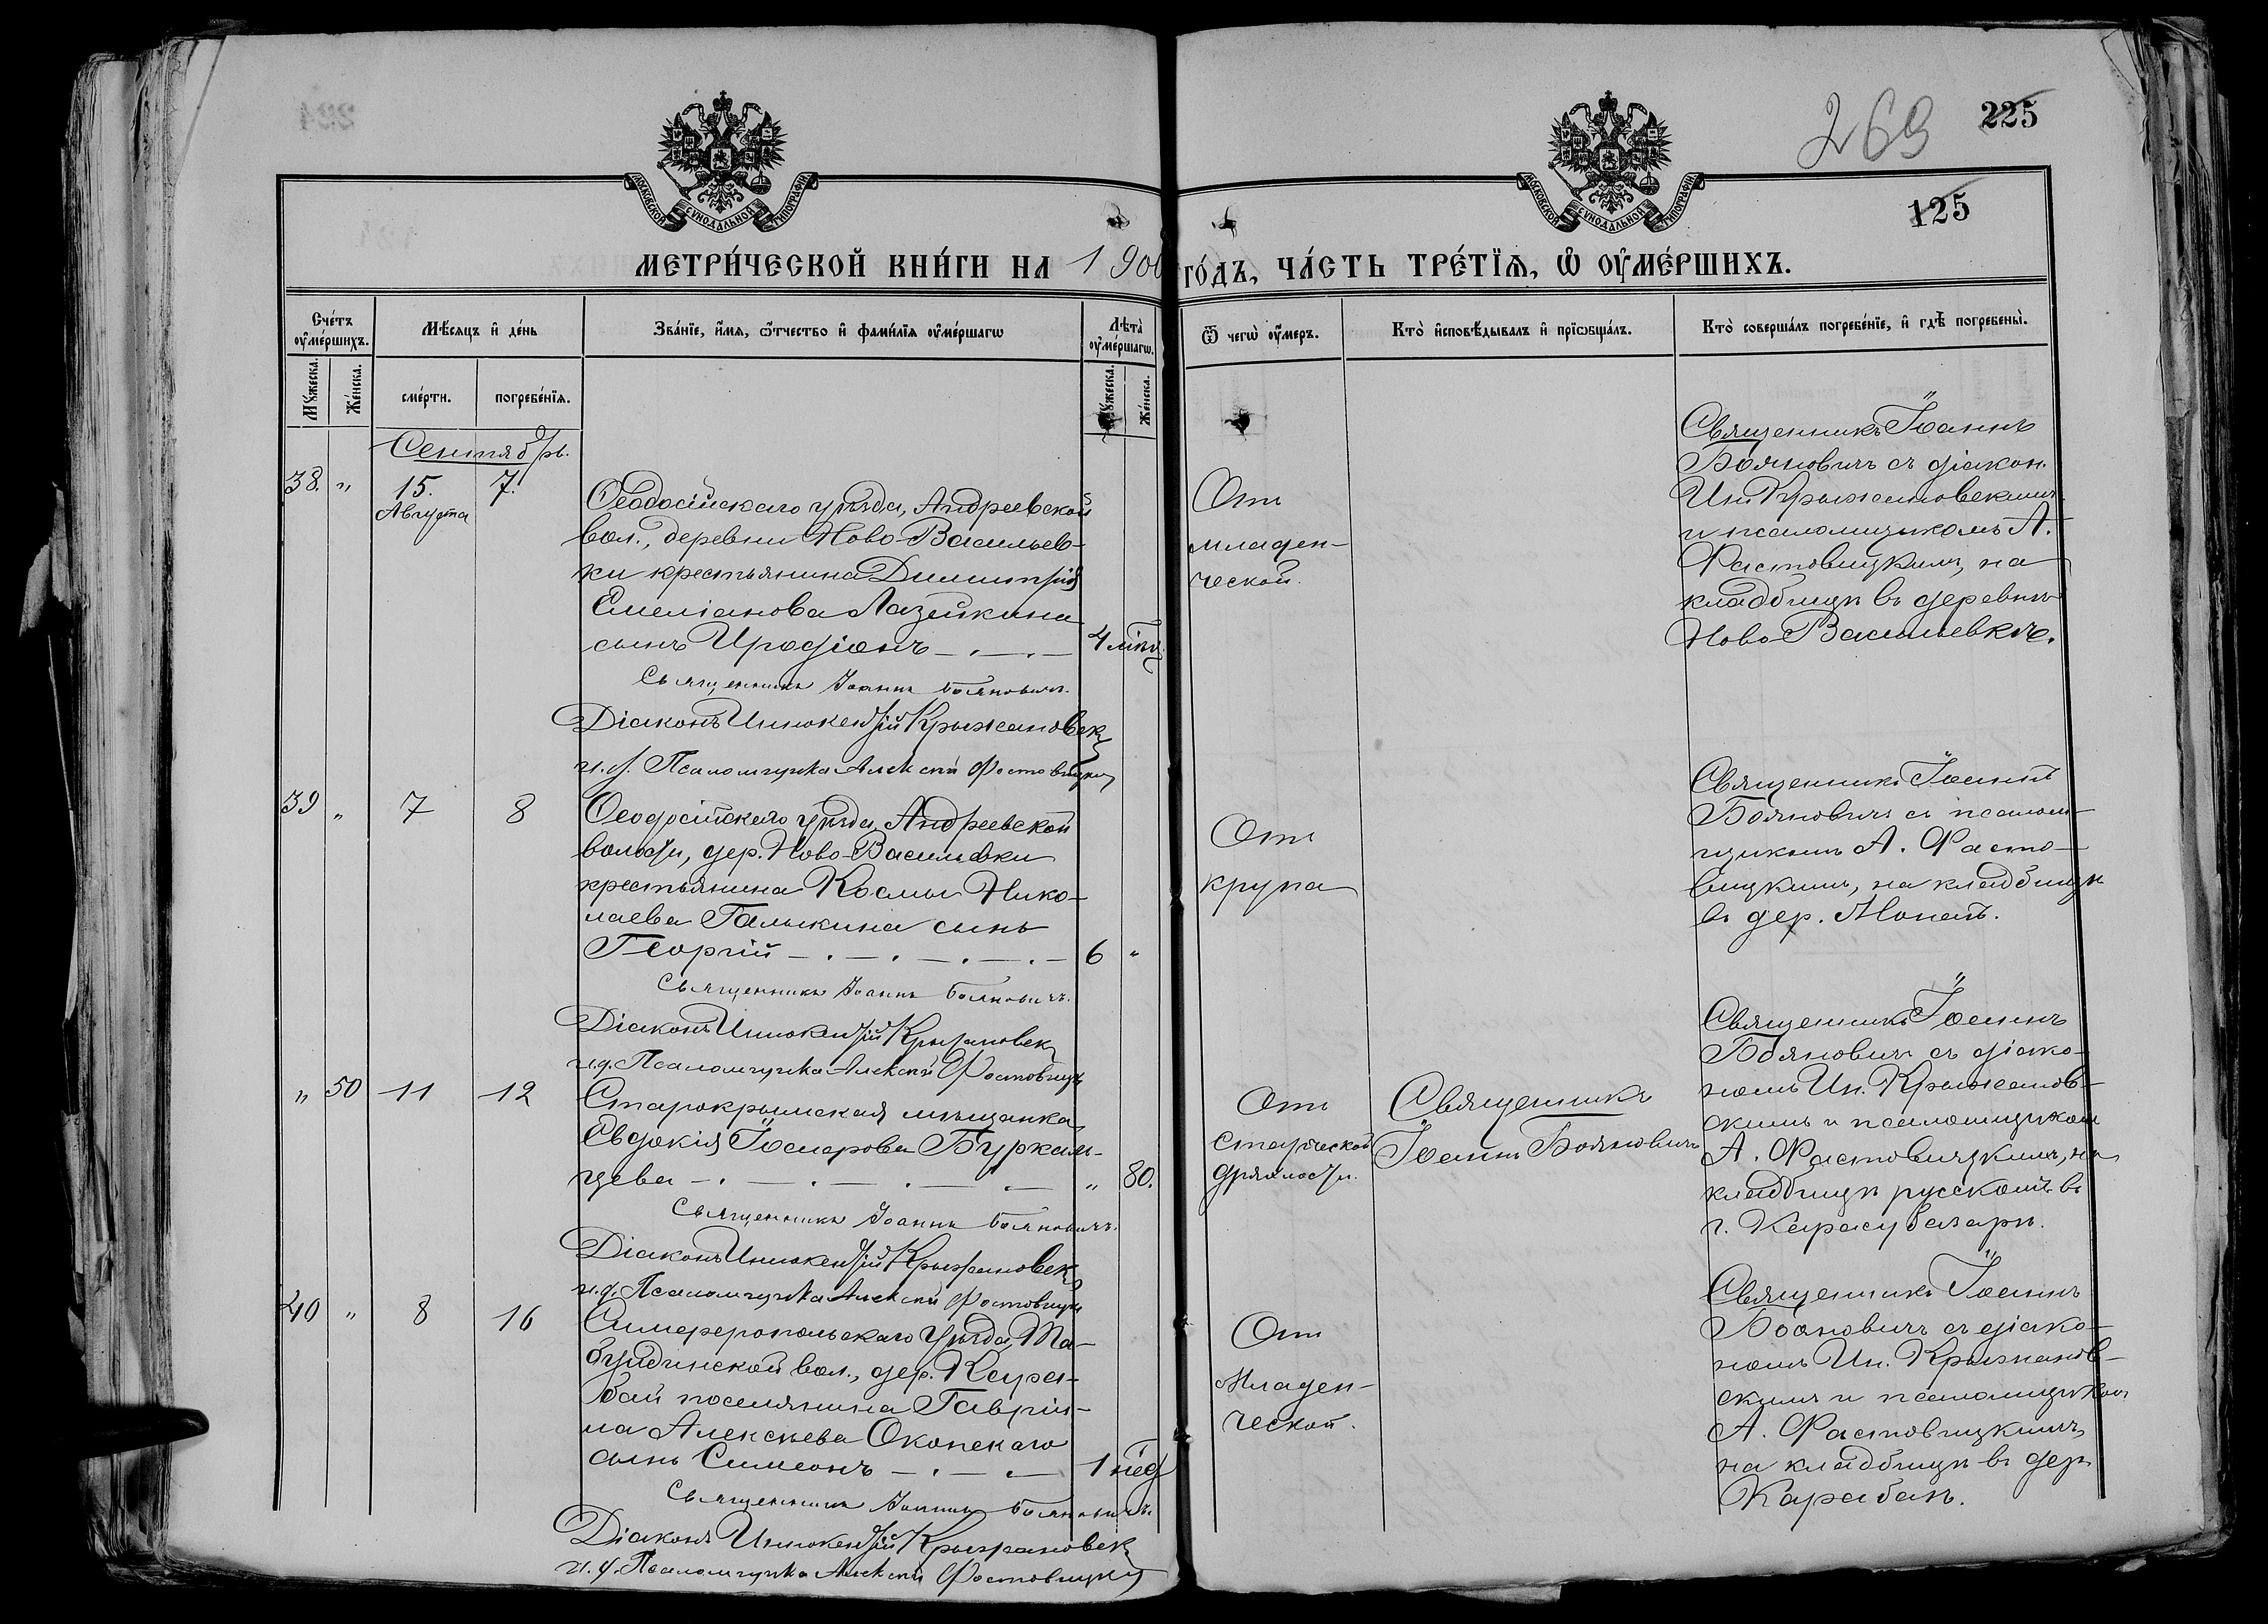 269
225
125
МОСКОВСКОЙ СУНОДАЛЬНОЙ ТИПОГРАФІИ
МОСКОВСКОЙ СУНОДАЛЬНОЙ ТИПОГРАФІИ
МЕТРИ́ЧЕСКОЙ КНИ́ГИ НА 1900 ГО́ДЪ, ЧА́СТЬ ТРЕ́ТЇѦ, Ѡ ОУ҆МЕ́РШИХЪ.
Сче́тъ оу҆ме́ршихъ.
Мꙋ́жеска.
Же́нска.
Мѣ́сѧцъ и҆ де́нь
сме́рти.
погребе́нїѧ.
Зва́нїе, и҆́мѧ, ѻ҆́тчество и҆ фами́лїѧ оу҆ме́ршагѡ
Лѣ́та оу҆ме́ршагѡ.
Мꙋ́жеска.
Же́нска.
Ѿ чегѡ̀ оу҆́меръ.
Кто̀ и҆сповѣ́дывалъ и҆ прїѡбща́лъ.
Кто̀ соверша́лъ погребе́нїе, и҆ гдѣ̀ погребены̀.
Сентябрь.
38. " 15. Августа 7.
Ѳеодосійскаго уѣзда, Андреевской
вол., деревни Ново-Васильев-
ки крестьянина Димитрія
Емеліанова Лазейкина
сынъ Иродіонъ 4 мѣс.
Священникъ Іоаннъ Бояновичъ.
Діаконъ Иннокентій Крыжановск
и.д. Псаломщика Алексѣй Фастовицкій
Отъ
младен-
ческой.
Священникъ Іоаннъ
Бояновичъ съ діакон.
Ин. Крыжановскимъ
и псаломщикомъ А.
Фастовицкимъ, на
кладбищѣ въ деревнѣ
Ново-Васильевкѣ.
39 " 7 8
Ѳеодосійскаго уѣзда, Андреевской
волости, дер. Ново-Васильевки
крестьянина Космы Нико-
лаева Галыкина сынъ
Георгій 6 "
Священникъ Іоаннъ Бояновичъ.
Діаконъ Иннокентій Крыжановск
и.д. Псаломщика Алексѣй Фастовицкій
Отъ
крупа
Священникъ Іоаннъ
Бояновичъ съ псалом-
щикомъ А. Фасто-
вицкимъ, на кладбищѣ
въ дер.
" 50 11 12
Старокрымская мѣщанка
Евдокія
" 80.
Священникъ Іоаннъ Бояновичъ.
Діаконъ Иннокентій Крыжановск
и.д. Псаломщика Алексѣй Фастовицкій
Отъ
старческой
дряхлости.
Священникъ
Іоаннъ Бояновичъ
Священникъ Іоаннъ
Бояновичъ съ діако-
номъ Ин. Крыжанов-
скимъ и псаломщикомъ
А. Фастовицкимъ, на
кладбищѣ русскомъ въ
г. Карасубазарѣ.
40 " 8 16
Симферопольскаго уѣзда, Та-
булдинской вол., дер. Кара-
бай поселянина Гаврии-
ла Алексѣева Окопскаго
сынъ Симеонъ 1 нед
Священникъ Іоаннъ Бояновичъ.
Діаконъ Иннокентій Крыжановск
и.д. Псаломщика Алексѣй Фастовицкій
Отъ
младен-
ческой.
Священникъ Іоаннъ
Бояновичъ съ діако-
номъ Ин. Крыжанов-
скимъ и псаломщикомъ
А. Фастовицкимъ,
на кладбищѣ въ дер.
Карабаѣ.